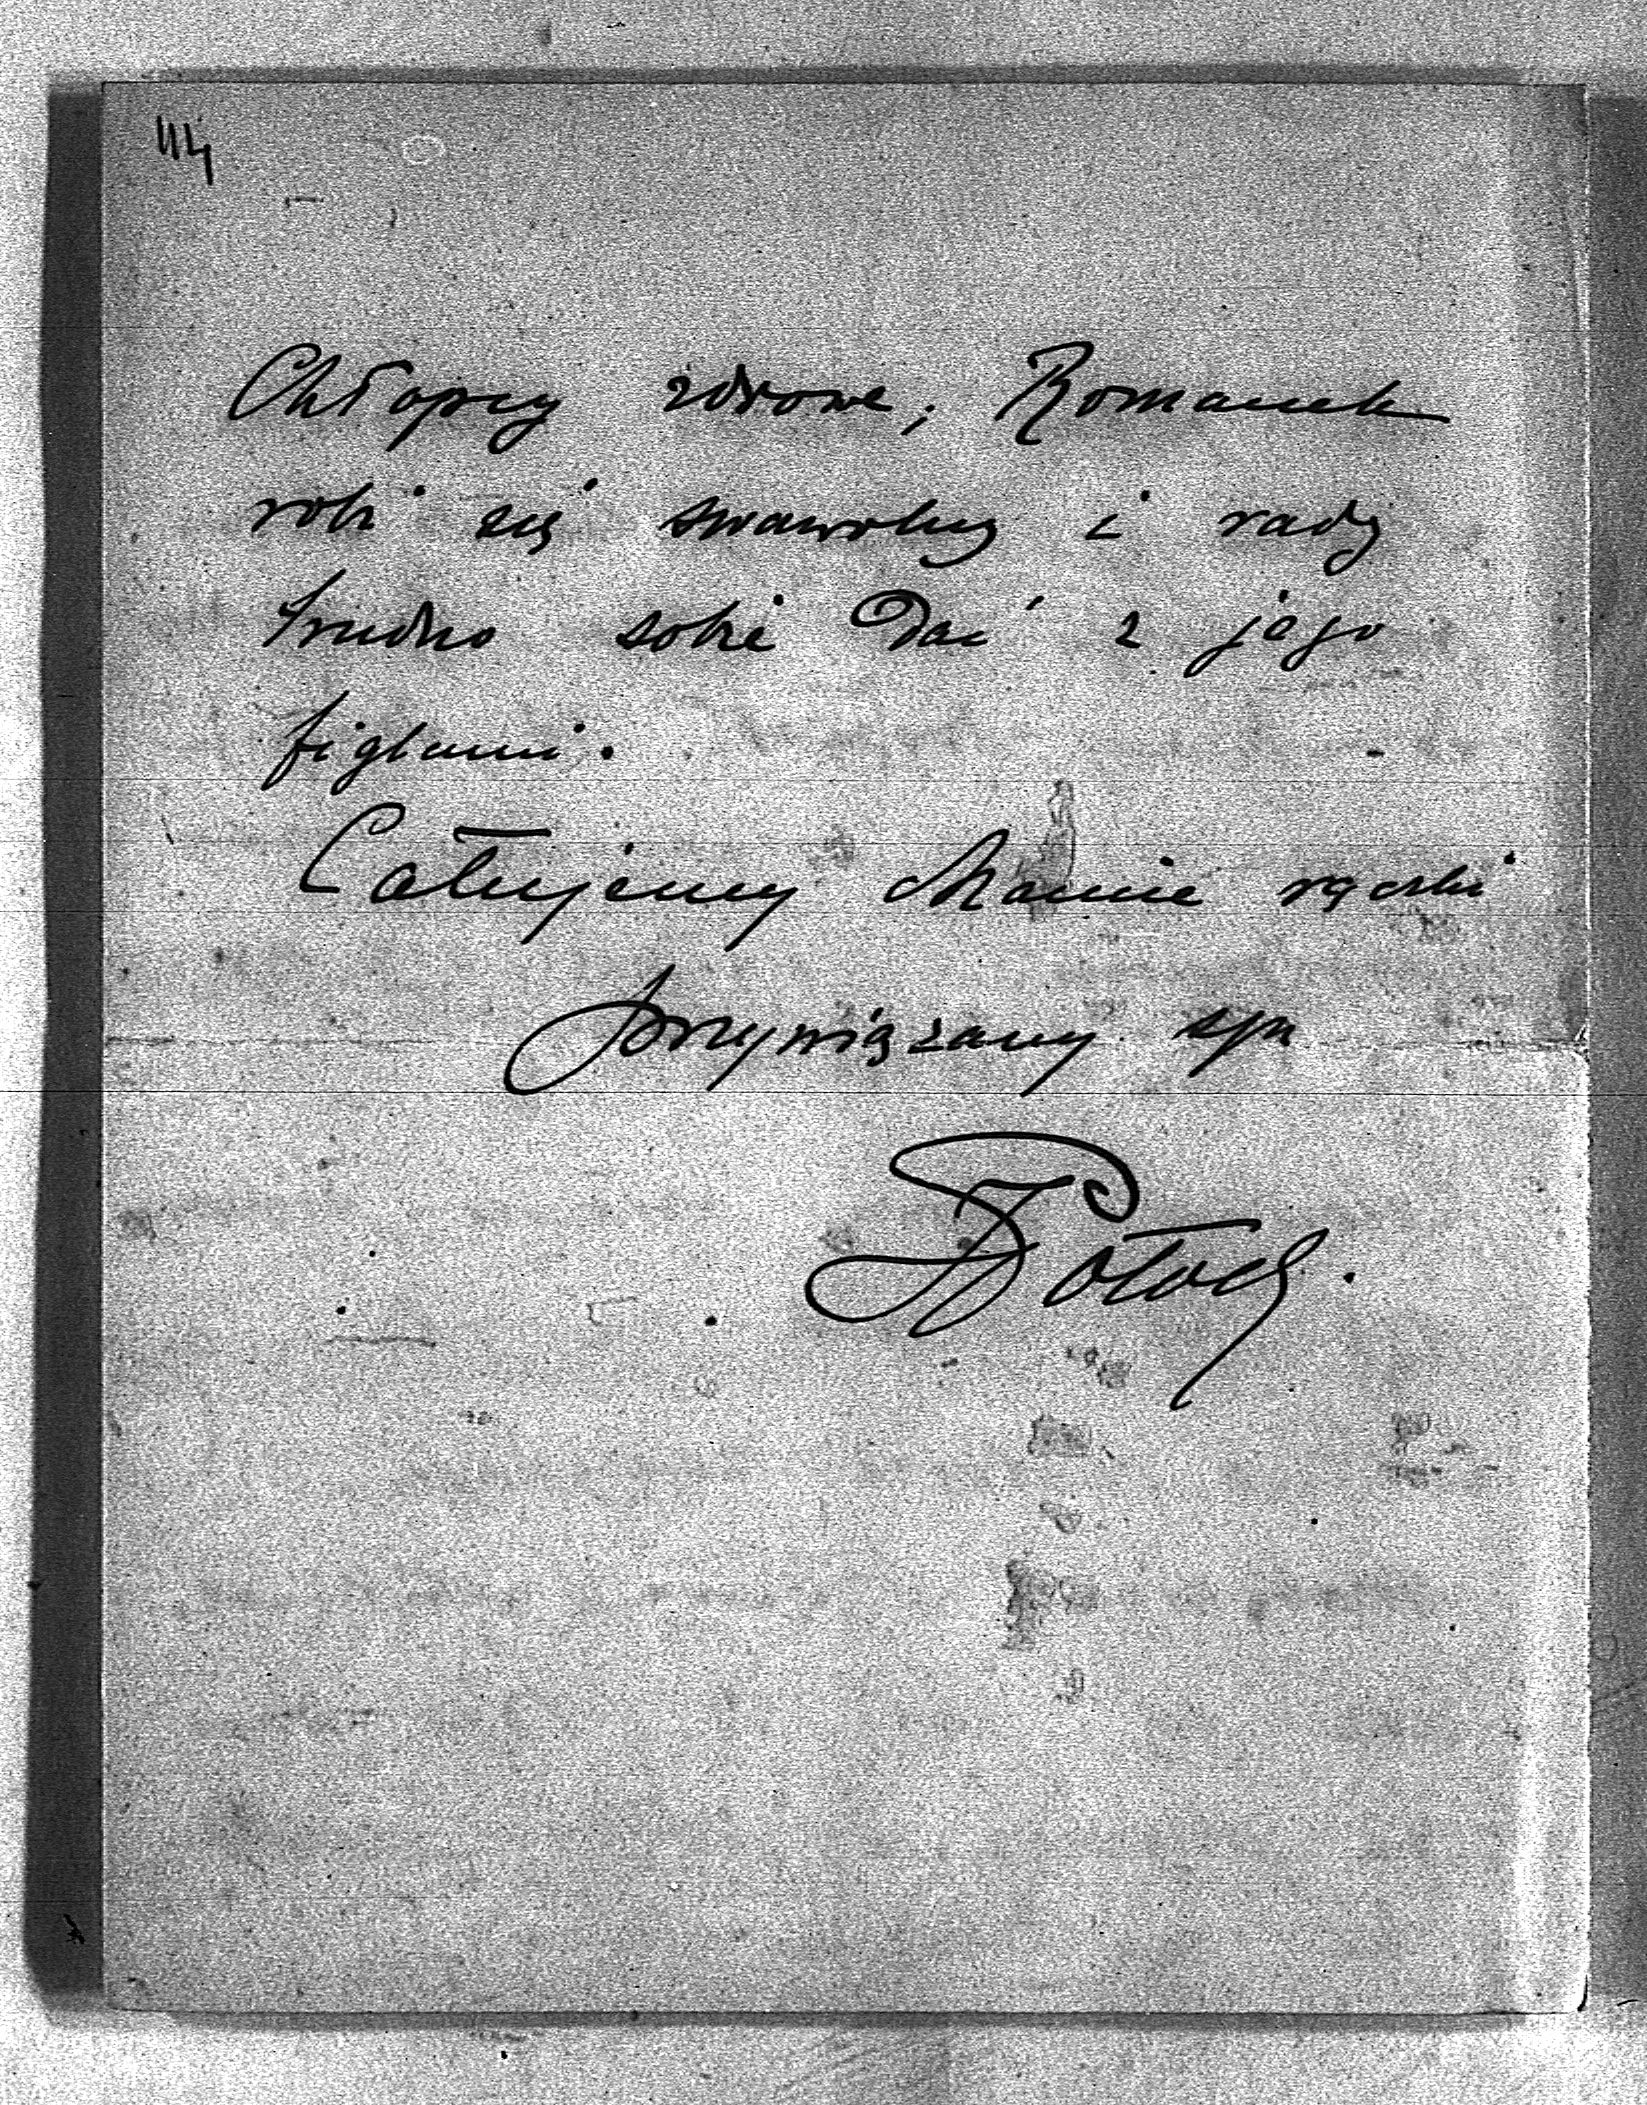 114
Chłopcy zdrowe, Romanek
robi się swawolny i rady
trudno sobie dać z jego
figlami.
Całujemy Mamie rączki
przywiązany syn